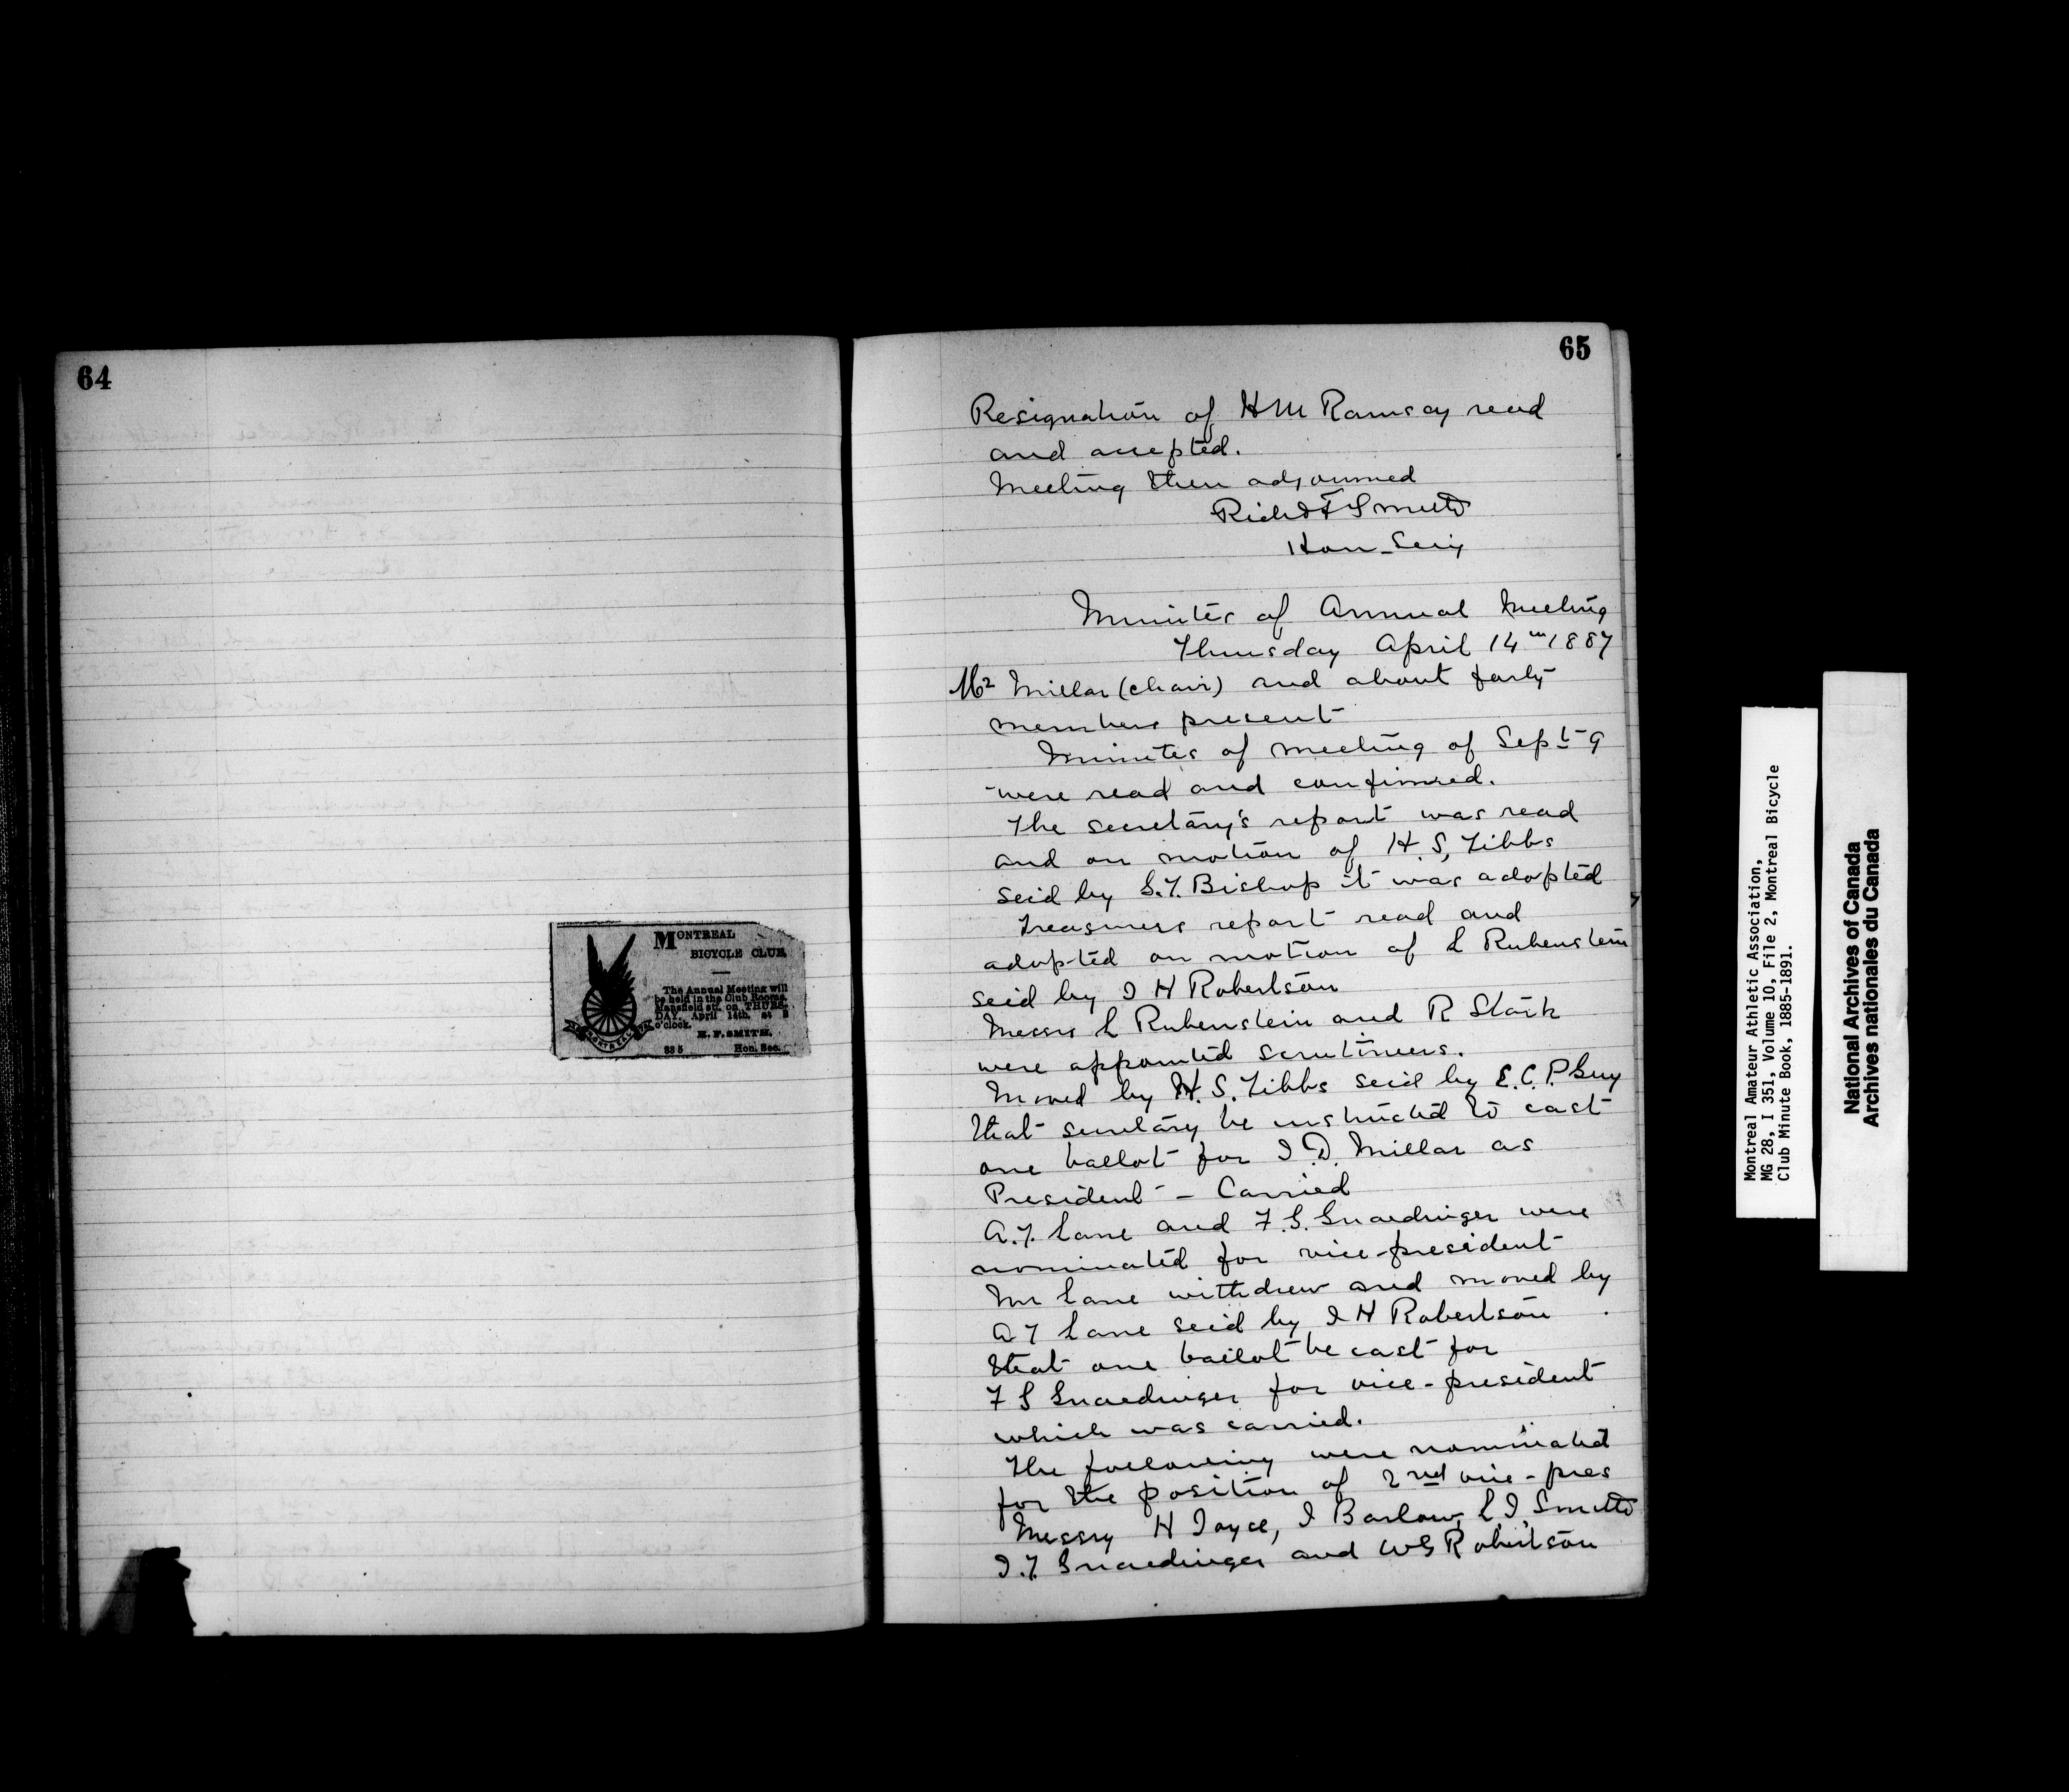 64
MONTREAL
BICYCLE CLUB
The Annual Meeting will
be held in the Club Rooms,
Mansfield st., on THURS-
DAY, April 14th, at 8
o'clock.
R. F. SMITH,
88 5 Hon. Sec.
MONTREAL
65
Resignation of H M Ramsay read
and accepted.
Meeting then adjourned
Richd F Smith
Hon_Secy
Minutes of Annual Meeting
Thursday April 14th 1887
Mr Millar (chair) and about forty
members present
Minutes of meeting of Sept 9
were read and confirmed.
The secretary's report was read
and on motion of H. S. Tibbs
sec'd by G.T. Bishop it was adopted
Treasurers report read and
adopted on motion of L Rubenstein
sec'd by J H Robertson
Messrs L Rubenstein and R Stark
were appointed scrutineers.
Moved by H. S. Tibbs sec'd by E. C. P. Guy
that secretary be instructed to cast
one ballot for J. D. Millar as
President - Carried
A. T. Lane and F. G. Gnaedinger were
nominated for vice-president
Mr Lane withdrew and moved by
A T Lane sec'd by J H Robertson
that one ballot be cast for
F G Gnaedinger for vice-president
which was carried.
The following were nominated
for the position of 2nd vice-pres
Messrs H Joyce, J Barlow, L. J. Smith
J. T. Gnaedinger and W G Robertson
Montreal Amateur Athletic Association,
MG 28, I 351, Volume 10, File 2, Montreal Bicycle
Club Minute Book, 1885-1891.
National Archives of Canada
Archives nationales du Canada